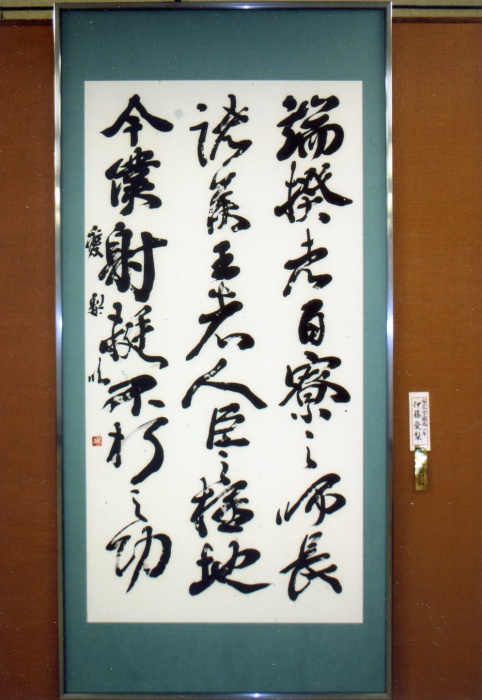 端揆者百寮之師長
諸侯王者人臣之極地
今僕射挺不朽之功
愛梨臨
伊藤愛梨